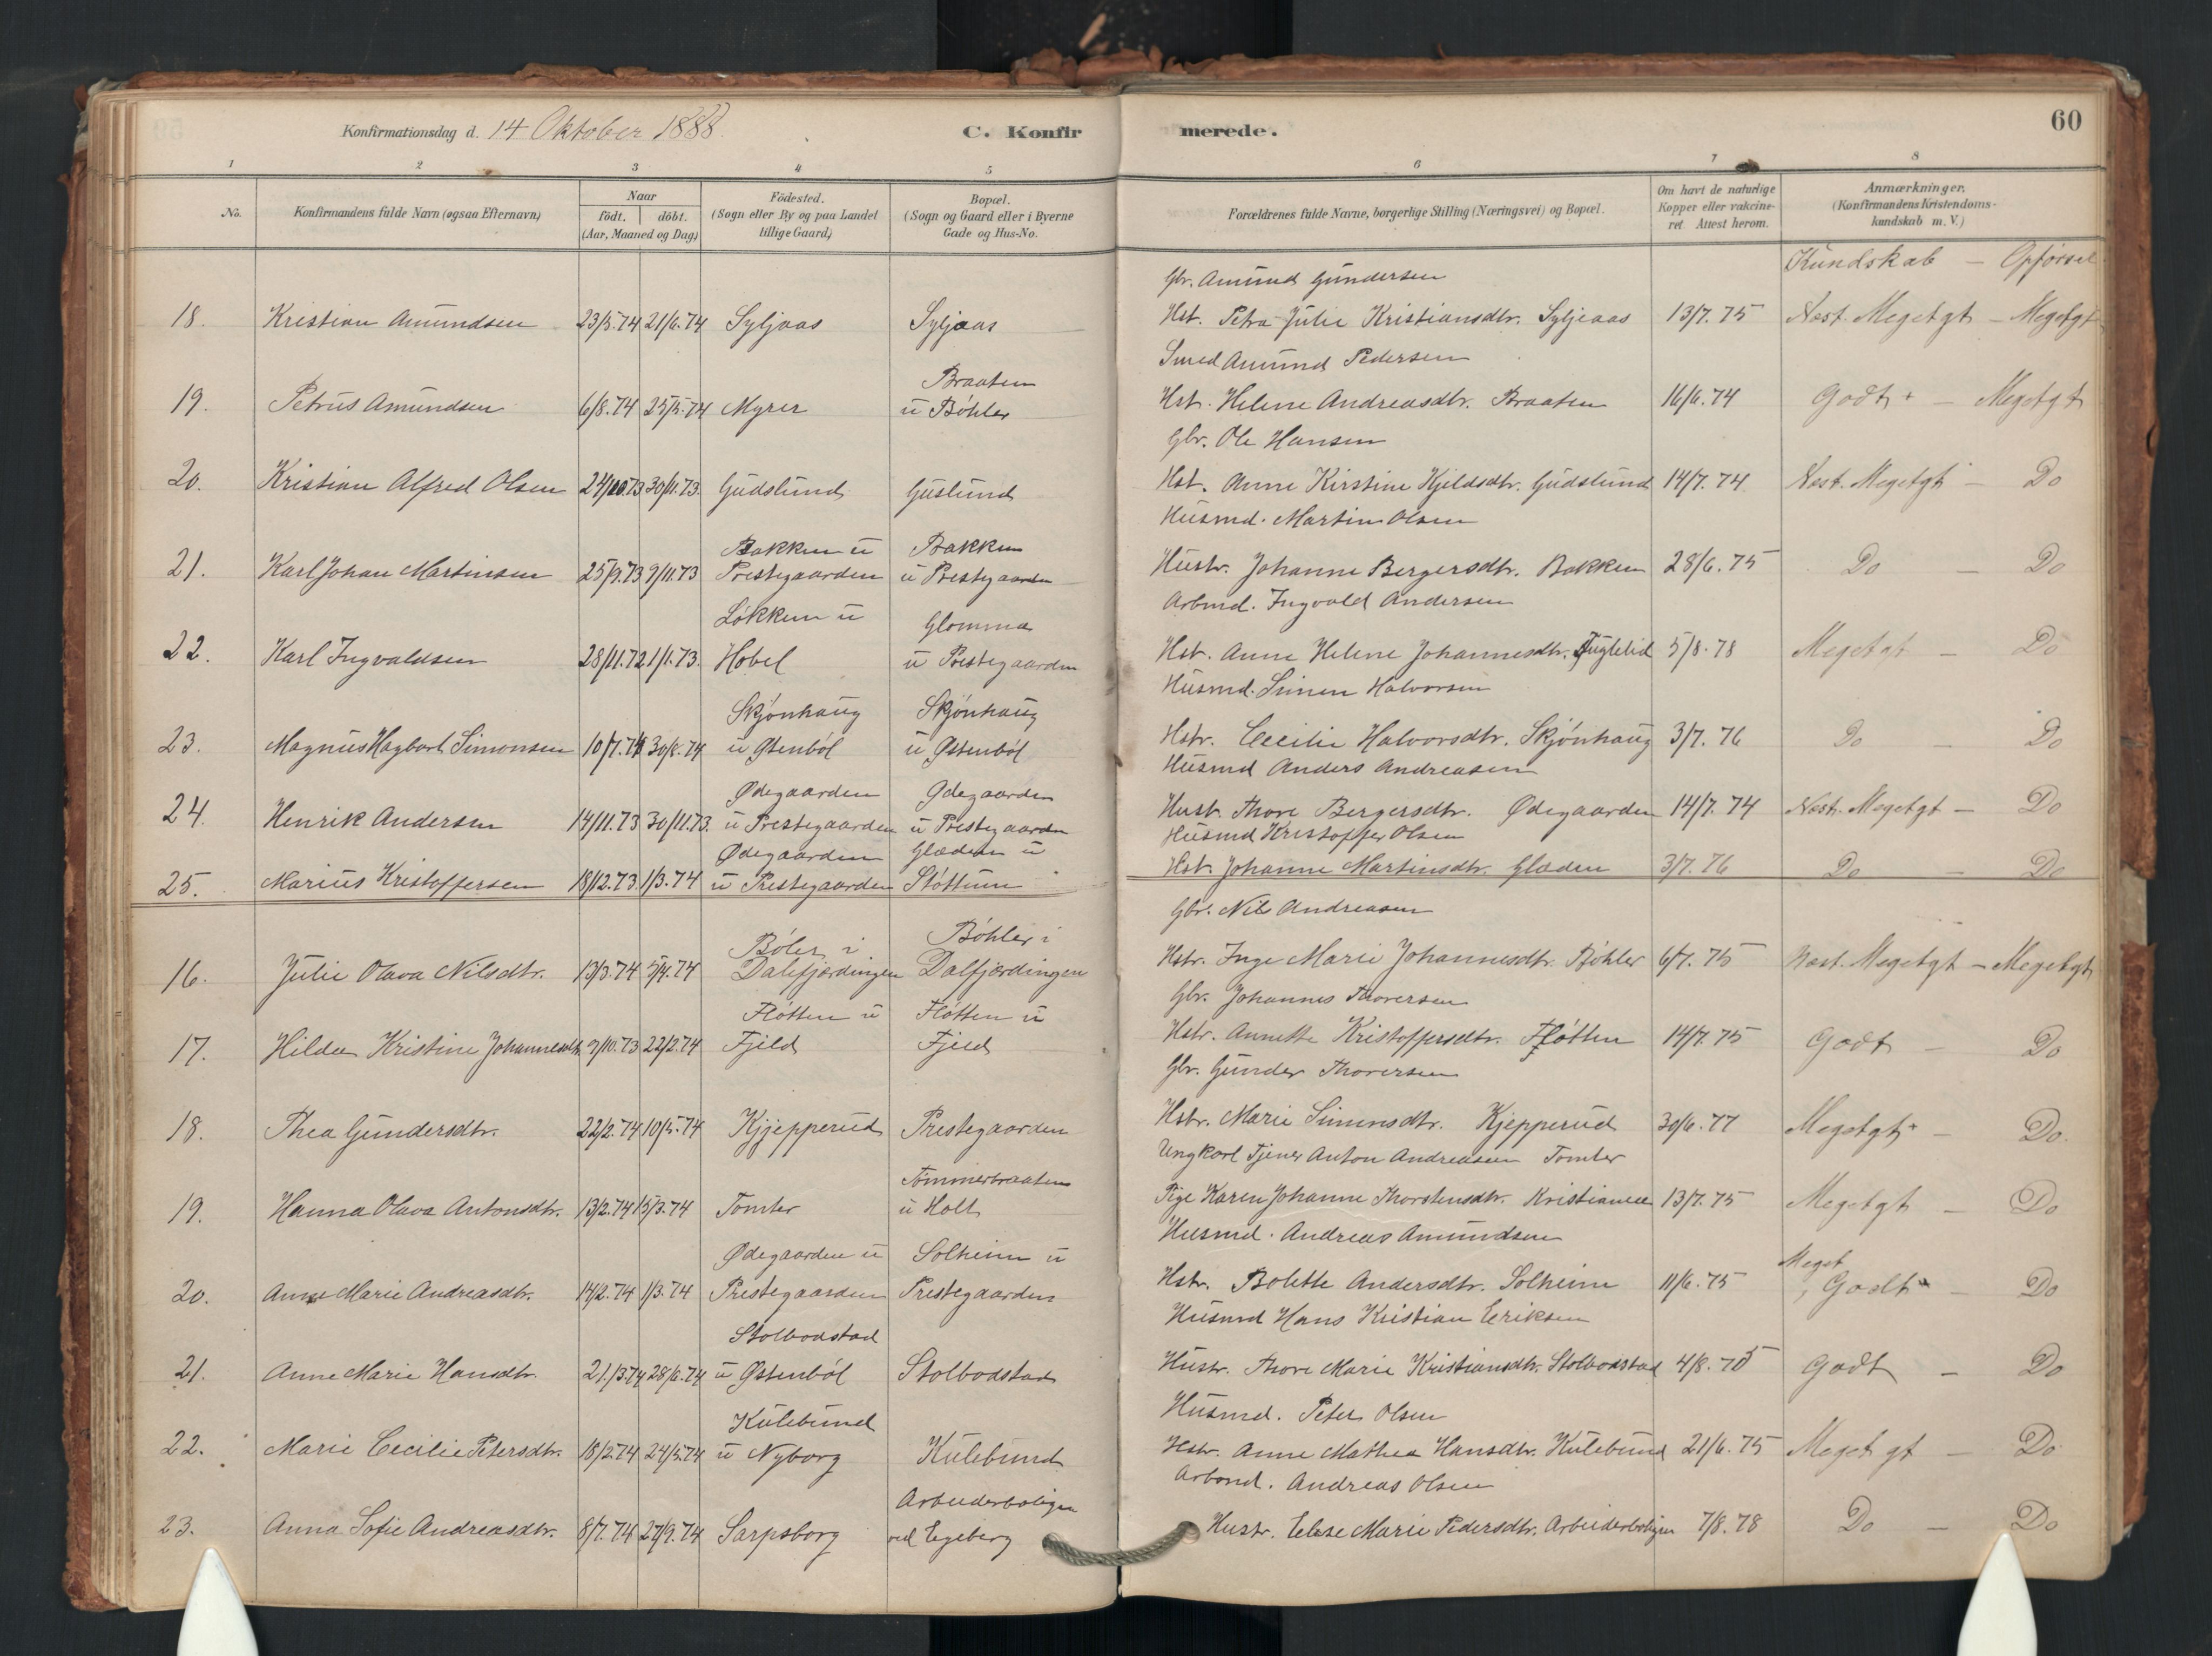 Konfirmationsdag d. 14 Oktober 1888. C. Konfirmerede. 60
1 2 3 4 5 6 7 8
No. Konfirmandens fulde Navn (ogsaa Efternavn) Naar födt. döbt. (Aar, Maaned og Dag) Födested. (Sogn eller By og paa Landet tillige Gaard) Bopæl. (Sogn og Gaard eller i Byerne Gade og Hus-No. Forældrenes fulde Navne, borgerlige Stilling (Næringsvei) og Bopæl. Om havt de naturlige Kopper eller vakcineret Attest herom. Anmærkninger, (Konfirmandens Kristendomskundskab m. V.)
Kundskab - Opførsel
Gbr. Amund Gundersen
18. Kristian Amundsen 23/5.74 21/6.74 Syljaas Syljaas Hst. Petra Julie Kristiansdtr. Syljeaas 13/7.75 Næst. Megetgt - Megetgt
Smed Amund Pedersen
Braaten
19. Petrus Amundsen 6/8.74 25/5.74 Myrer u Böhler Hst. Helene Andreasdtr. Braaten 16/6.74 Godt+ - Megetgt
Gbr. Ole Hansen
20. Kristian Alfred Olsen 24/10.73 30/11.73. Gudslund Guslund Hst. Anne Kirstine Kjeldsdtr. Gudslund 14/7.74 Næst. Megetgt - Do
Husmd. Martin Olsen
Bakken u Bakken
21. Karl Johan Martinsen 25/9.73 9/11.73 Prestegaarden u Prestegaarden Hustr. Johanne Bergersdtr. Bakken 28/6.75 Do - Do
Arbmd. Ingvald Andersen
Løkken u Glomma
22. Karl Ingvaldsen 28/11.72 1/1.73. Hobel u Prestegaarden Hst. Anne Helene Johannesdtr. Fuglelid 5/8.78 Megetgt - Do
Husmd. Simen Halvorsen
Skjönhaug Skjönhaug
23. Magnus Hagbart Simonsen 10/7.74 30/8.74 u Østenböl u Østenböl Hstr. Cecilie Halvorsdtr. Skjönhaug 3/7.76 Do - Do
Husmd Anders Andreasen
Ødegaarden Ødegaarden
24. Henrik Andersen 14/11.73 30/11.73. u Prestegaarden u Prestegaarden Hust. Thore Bergersdtr. Ødegaarden 14/7.74 Næst. Megetgt - Do
Husmd Kristoffer Olsen
Ødegaarden Glæden u
25. Marius Kristoffersen 18/12.73 1/3.74 u Prestegaarden Støttum Hst. Johanne Martinsdtr. Glæden 3/7.76 Do - Do
Gbr. Nils Andreasen
Böler i Böhler i
16. Julie Olava Nilsdtr. 13/3.74 5/4.74 Dalefjerdingen Dalfjerdingen Hstr. Inge Marie Johannesdtr. Böhler 6/7.75 Næst. Megetgt - Megetgt
Gbr. Johannes Thoversen
Fløtten u Fløtten u
17. Hilda Kristine Johannesdtr. 9/10.73 22/2.74 Fjeld Fjeld Hstr. Annette Kristoffersdtr. Fløtten 14/7.75 Godt - Do
Gbr. Gunder Thoversen
18. Thea Gundersdtr. 22/2.74 10/5.74 Kjjepperud Prestegaarden Hstr. Marie Simensdtr. Kjepperud 30/6.77 Megetgt+ - Do.
Ungkarl Tjener Anton Andreasen Tomter
Tømmerbraaten
19. Hanna Olava Antonsdtr. 13/2.74 15/3.74 Tomter u Holt Pige Karen Johanne Thorstensdtr. Kristiania 13/7.75 Megetgt - Do
Husmd. Andreas Amundsen
Ødegaarden u Solheim u Meget
20. Anne Marie Andreasdtr. 14/2.74 1/3.74 Prestegaarden Prestegaarden Hstr. Bolette Andersdtr. Solheim 11/6.75 Godt - Do
Husmd Hans Kristian Eriksen
Stolbodstad
21. Anne Marie Hansdtr. 21/3.74 28/6.74 u Østenböl Stolbodstad Hustr. Thore Marie Kristiansdtr. Stolbodstad 4/8.75 Godt - Do
Husmd. Peter Olsen
Kulebund
22. Marie Cecilie Petersdtr. 18/2.74 24/5.74 u Nyborg Kulebund Hstr. Anne Mathea Hansdtr. Kulebund 21/6.75 Meget gt - Do
Arbmd. Andreas Olsen
Arbeiderboligen
23. Anna Sofie Andreasdtr. 8/7.74 27/9.74 Sarpsborg ved Egeberg Hustr. Elese Marie Pedersdtr. Arbeiderboligen 7/8.78 Do - Do